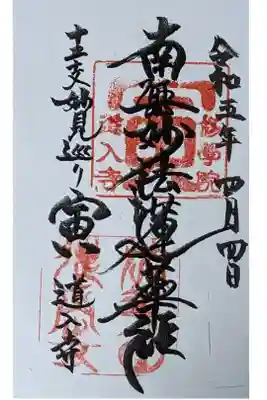 令和五年 四月四日
修學院
南無妙法蓮華経
道入寺
十二支妙見巡り 寅 道入寺